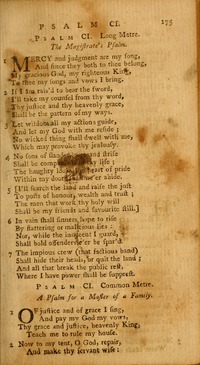 PSALM CI. 175
PSALM CI. Long Metre.
The Magistrate's Psalm.
1 MERCY and judgment are my song,
And since they both to thee belong,
My gracious God, my righteous King,
To thee my songs and vows I bring.
2 If I am rais'd to bear the sword,
I'll take my counsel from thy word,
Thy justice and thy heavenly grace,
Shall be the pattern of my ways.
3 Let wisdom all my actions guide,
And let my God with me reside;
No wicked thing shall dwell with me,
Which may provoke thy jealousy.
4 No sons of slander and strife
Shall be companions of my life;
The haughty look, the heart of pride
Within my doors shall ne'er abide.
5 [I'll search the land and raise the just
To posts of honour, wealth and trust;
The men that work thy holy will
Shall be my friends and favourites still.]
6 In vain shall sinners hope to rise
By flattering or malicious lies;
Nor, while the innocent I guard,
Shall bold offenders e'er be spar'd.
7 The impious crew (that factious band)
Shall hide their heads, or quit the land;
And all that break the public rest,
Where I have power shall be supprest.
PSALM CI. Common Metre.
A Psalm for a Master of a Family.
1 OF justice and of grace I sing,
And pay my God my vows,
Thy grace and justice, heavenly King,
Teach me to rule my house.
2 Now to my tent, O God, repair,
And make thy servant wise: